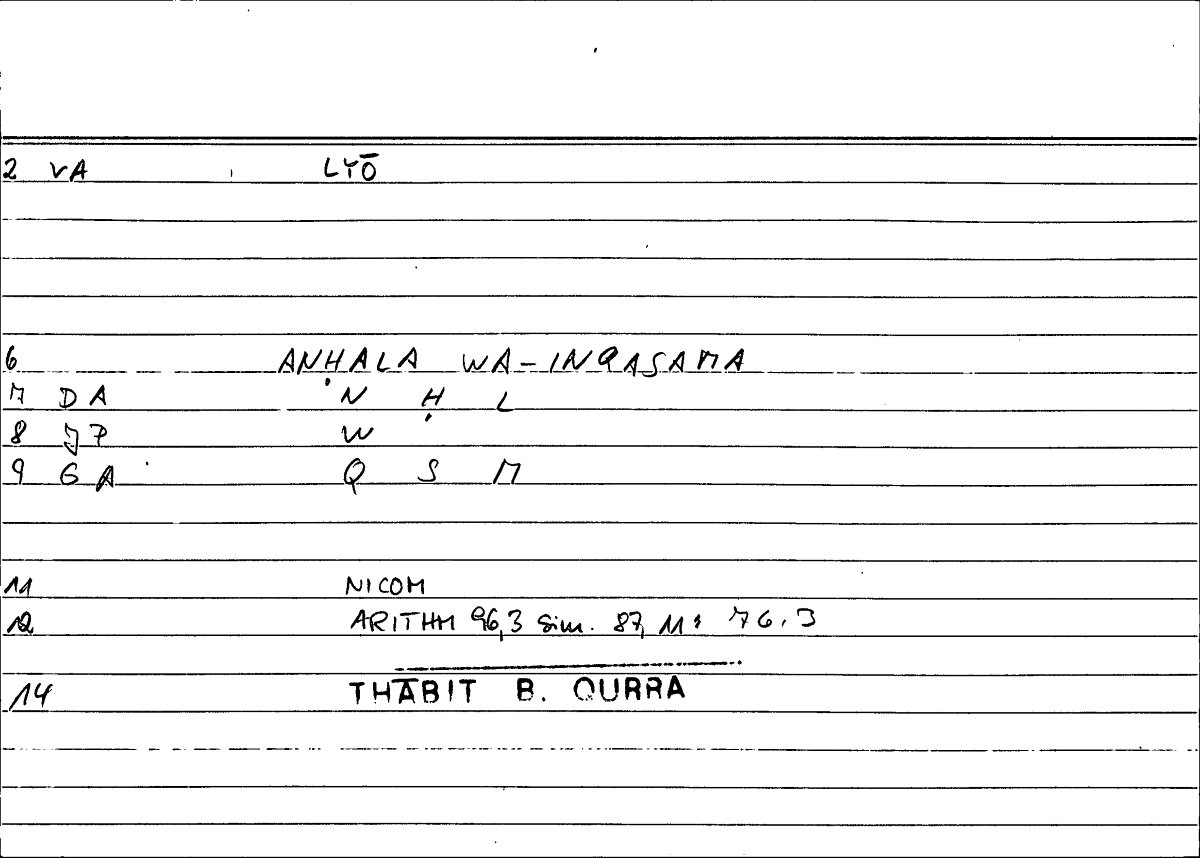 2 VA LYŌ
6 ANḤALA WA-INQASAMA
7 DA N Ḥ L
8 JP W
9 GA Q S M
11 NICOM
12 ARITHM 96,3 sim. 87, 11: 76.3
14 THĀBIT B. QURRA